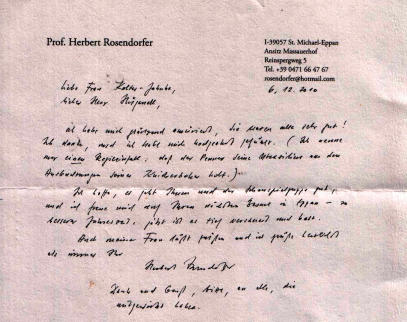 Prof. Herbert Rosendorfer
I-39057 St. Michael-Eppan
Ansitz Massauerhof
Reinspergweg 5
Tel. +39 0471 66 47 67
rosendorfer@hotmail.com
6. 12. 2010
Liebe Frau
lieber Herr
ich habe mich amüsiert, Sie waren alle sehr gut!
Ich danke, und ich habe mich gefühlt. (Ich nenne
nur einen Regieeinfall: daß der seine aus den
seiner holt.)
Ich hoffe, es geht Ihnen und der gut,
und ich freue mich auf Ihren nächsten in Eppan – zu
besserer Jahreszeit, jetzt ist es tief verschneit und kalt.
Auch meine Frau läßt grüßen und ich grüße herzlichst
als immer Ihr
Herbert Rosendorfer
Dank und Gruß, bitte, an alle, die
mitgewirkt haben.